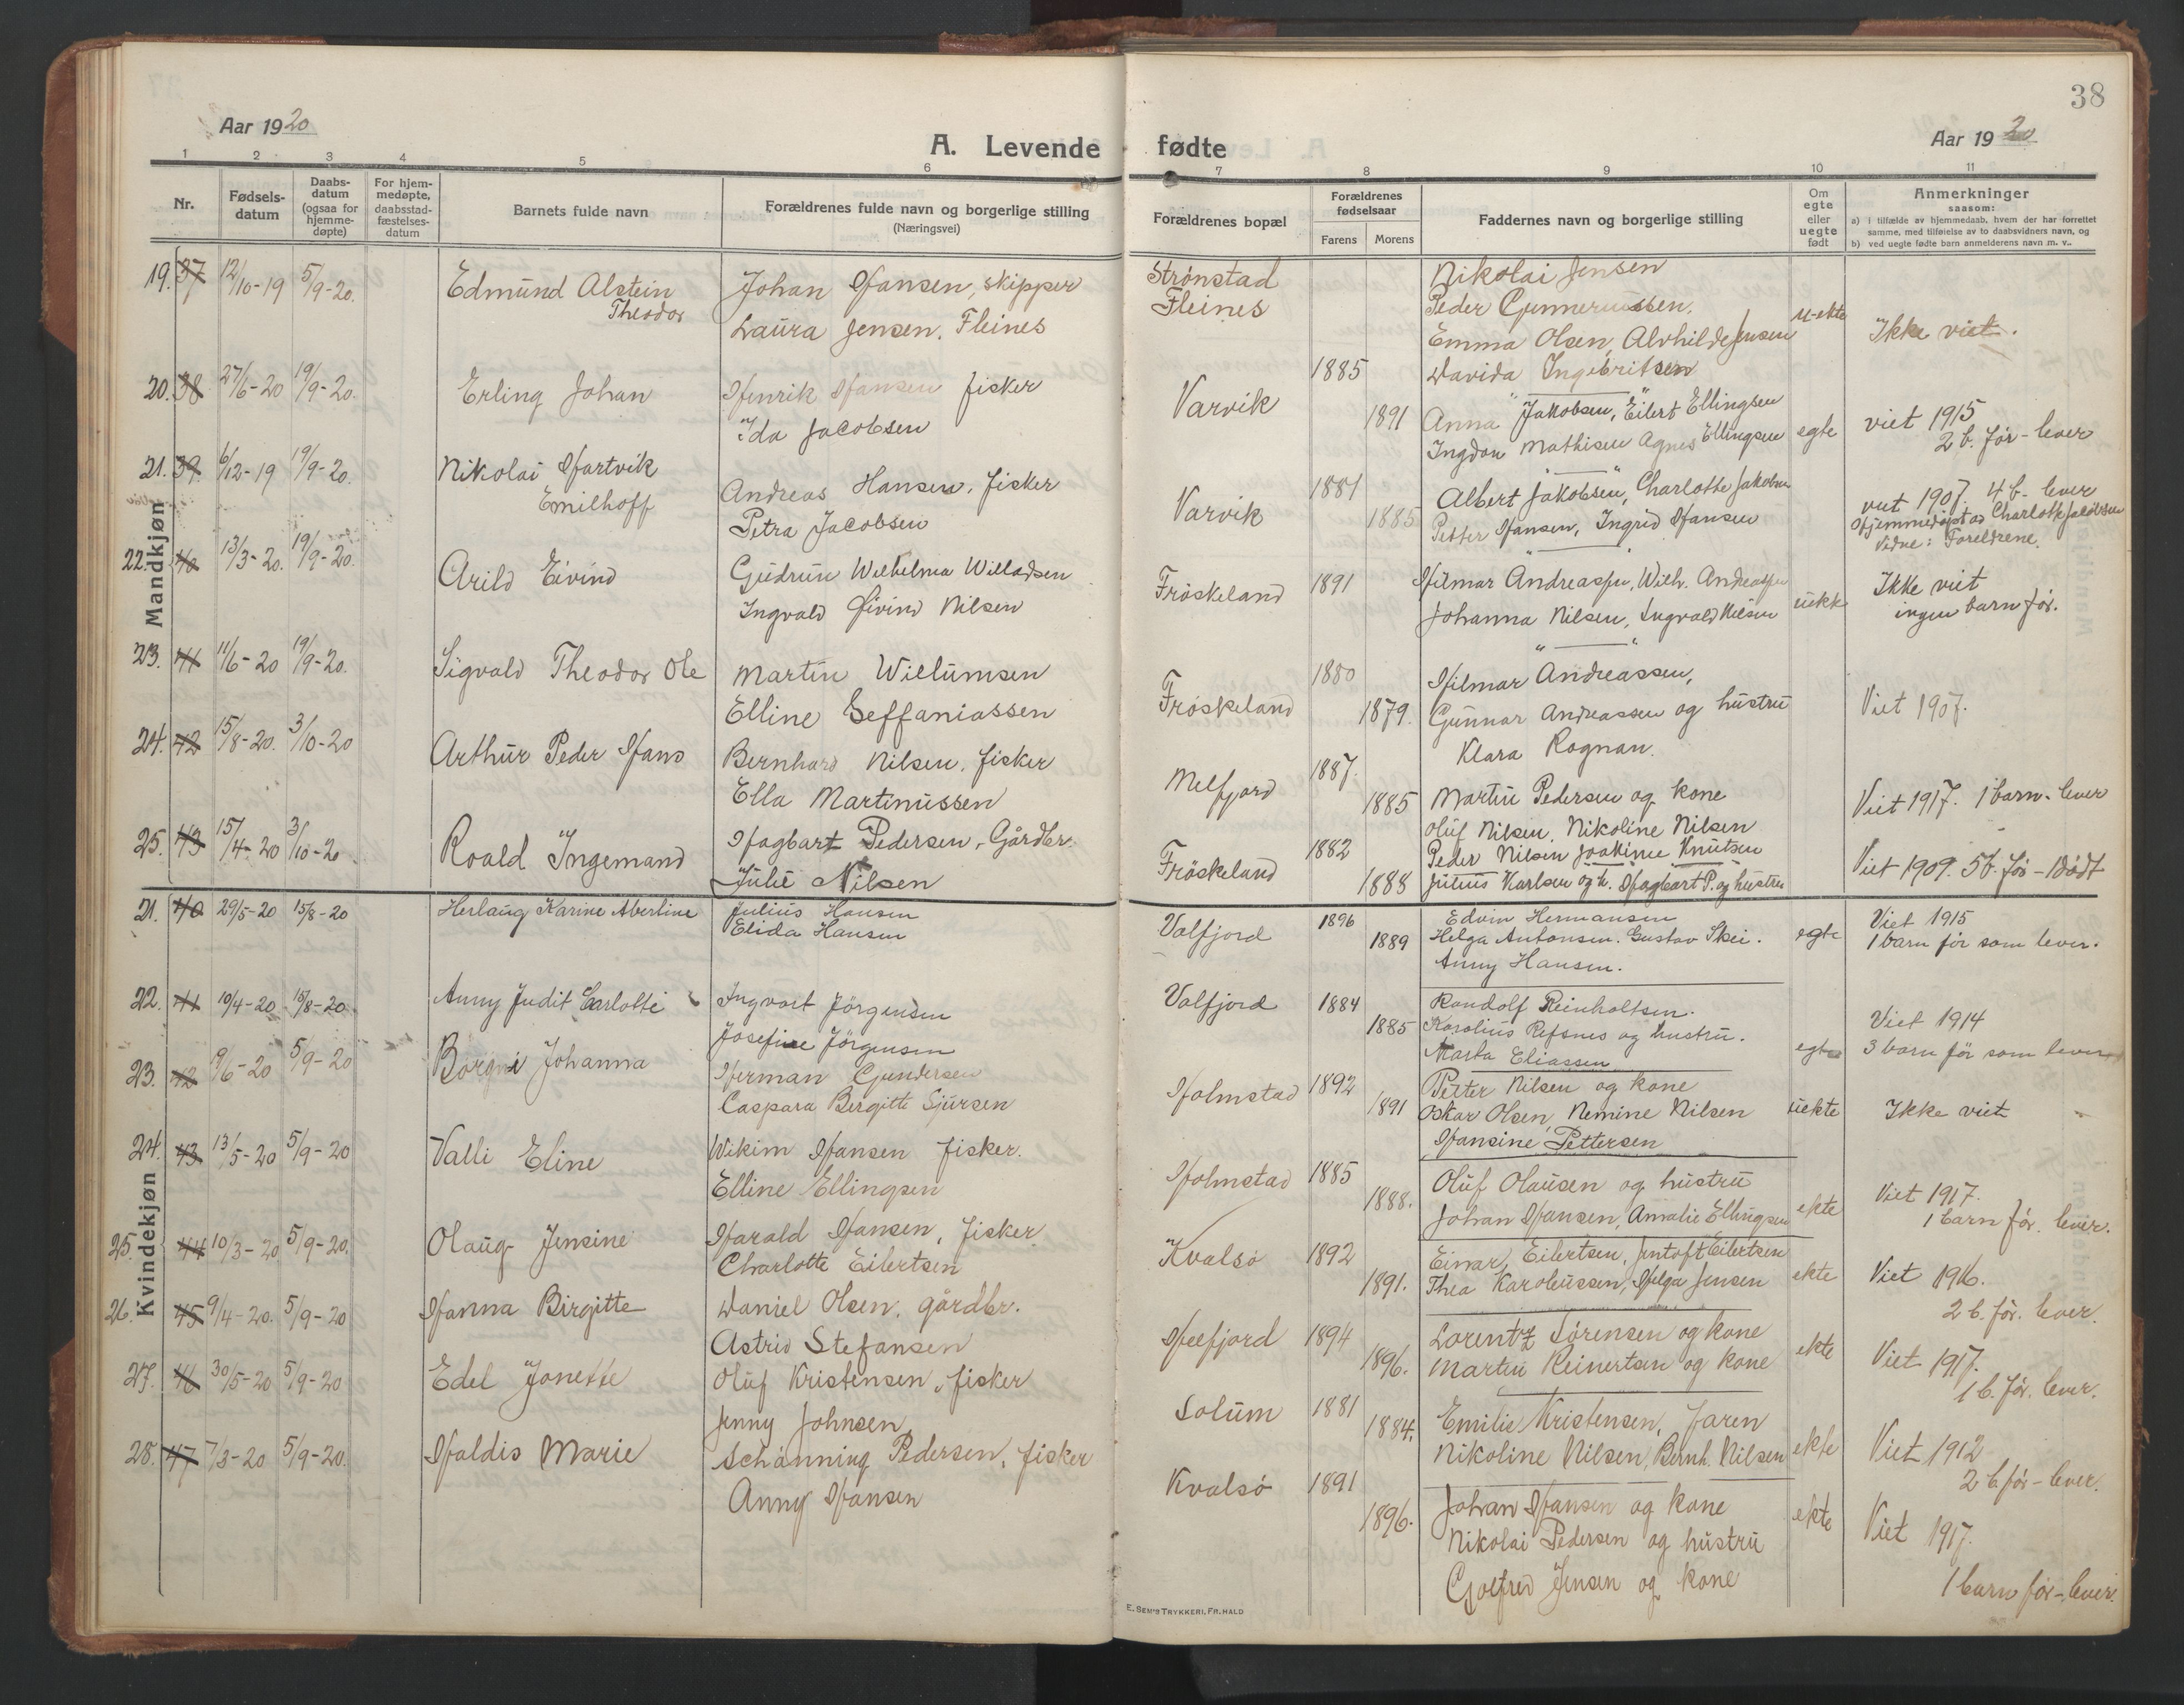 38
Aar 1920
A. Levende fødte
Aar 1920
1 2 3 4 5 6 7 8 9 10 11
Nr.
Fødsels-datum
Daabs-datum (ogsaa for hjemme-døpte)
For hjem-medøpte, daabsstad-fæstelses-datum
Barnets fulde navn
Forældrenes fulde navn og borgerlige stilling
(Næringsvei)
Forældrenes bopæl
Forældrenes fødselsaar
Farens Morens
Faddernes navn og borgerlige stilling
Om egte eller uegte født
Anmerkninger
saasom:
a) i tilfælde av hjemmedaab, hvem der har forrettet samme, med tilføielse av to daabsvidners navn, og
b) ved uegte fødte barn anmelderens navn m. v.
Mandkjøn
19. 37 12/10-19 5/9-20. Edmund Alstein Theodor
Johan Hansen, skipper
Laura Jensen. Fleines
Strønstad
Fleines
Nikolai Jensen
Peder Gunnerussen.
Emma Olsen, Alvhilde Jensen
Davida Ingebritsen
u-ekte
Ikke viet.
20. 38 27/6-20 19/9-20. Erling Johan
Henrik Hansen fisker
Ida Jacobsen
Varvik 1885 1891
Anna Jakobsen, Eilert Ellingsen
Mathisen Agnes Ellingsen
egte
viet 1915
2 b. før - lever
21. 39. 6/12-19 19/9-20. Nikolai Hartvik
Emilhoff
Andreas Hansen, fisker
Petra Jacobsen
Varvik 1881 1885
Albert Jakobsen, Charlotte Jakobsen
Petter Hansen, Ingrid Hansen
viet 1907. 4 b- lever
Hjemmedøpt av Charlotte Jakobsen
Vidne: Foreldrene.
22. 40 13/3-20. 19/9-20. Arild Eivind
Gudrun Wilhelma Willadsen
Ingvald Øivind Nilsen
Frøskeland 1891
Hilmar Andreassen, Wilh. Andreassen
Johanna Nilsen, Ingvald Nilsen
uekte
Ikke viet
ingen barn før.
23. 41 11/6-20 19/9-20. Sigvald Theodor Ole
Martin Willumsen
Elline Seffaniassen
Frøskeland 1880 1879.
Hilmar Andreassen,
Gunnar Andreassen og hustru
Klara Rognan.
Viet 1907.
24. 42 15/8-20. 3/10-20 Arthur Peder Hans
Bernhard Nilsen, fisker
Ella Martinussen
Melfjord 1887. 1885
Martin Pedersen og kone
Oluf Nilsen, Nikoline Nilsen
Viet 1917. 1 barn - lever
25. 43 15/4-20 3/10-20 Roald Ingemand
Hagbart Pedersen, Gårdbr.
Julie Nilsen
Frøskeland 1882 1888
Peder Nilsen Joakime Knutsen
Julius Karlsen og h. Hagbart P. og hustru
Viet 1909. 5 b. før - 1 dødt
Kvindekjøn
21. 40 29/5-20 15/8-20 Herlaug Karine Abertine
Julius Hansen
Elida Hansen
Valfjord 1896 1889
Edvin Hermansen
Helga Antonsen. Gustav Skei.
Anny Hansen.
egte
Viet 1915
1 barn før som lever.
22. 41 10/4-20 15/8-20 Anny Judit Carlotte
Ingvart Jørgensen
Josefine Jørgensen
Valfjord 1884 1885
Randolf Reinholtsen.
Karolius Refsnes og hustru.
Marta Eliassen
egte
Viet 1914
3 barn før som lever
23. 42 9/6-20 5/9-20 Borgni Johanna
Herman Gundersen
Caspara Bergitte Sjursen
Holmstad 1892 1891
Petter Nilsen og kone
Oskar Olsen, Nemine Nilsen
Hansine Pettersen
uekte
Ikke viet
24. 43 13/5-20 5/9-20 Valli Eline
Wikim Hansen fisker.
Elline Ellingsen
Holmstad 1885 1888.
Oluf Olausen og hustru
Johan Hansen, Amalie Ellingsen
ekte
Viet 1917.
1 barn før. lever.
25. 44 10/3-20 5/9-20. Olaug Jensine
Harald Hansen, fisker
Charlotte Eilertsen
Kvalsø 1892 1891.
Einar Eilertsen, Jentoft Eilertsen
Thea Karoliussen, Helga Jensen
ekte
Viet 1916.
2 b. før. lever.
26. 45 9/4-20. 5/9-20 Hanna Birgitte
Daniel Olsen, gårdbr.
Astrid Stefansen
Helfjord 1894 1896.
Lorentz Sørensen og kone
Martin Reinertsen og kone
ekte
Viet 1917.
1 b. før. lever.
27. 46 30/5-20 5/9-20 Edel Jonette
Oluf Kristensen, fisker
Jenny Johnsen
Solum 1881 1884.
Emilie Kristensen, faren
Nikoline Nilsen, Bernh. Nilsen
ekte
Viet 1912
2 b før - lever.
28. 47 7/3-20 5/9-20. Haldis Marie
Schånning Pedersen, fisker
Anny Hansen
Kvalsø 1891 1896.
Johan Hansen og kone
Nikolai Pedersen og hustru
Golfred Jensen og kone
ekte
Viet 1917.
1 barn før - lever.
E. Sem's Trykkeri, Fr.hald